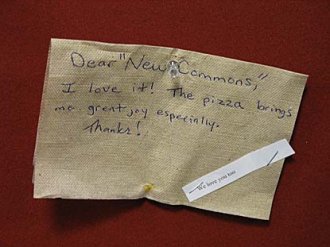 Dear "New Commons,"
I love it! The pizza brings
me great joy especially.
Thanks!
We love you too